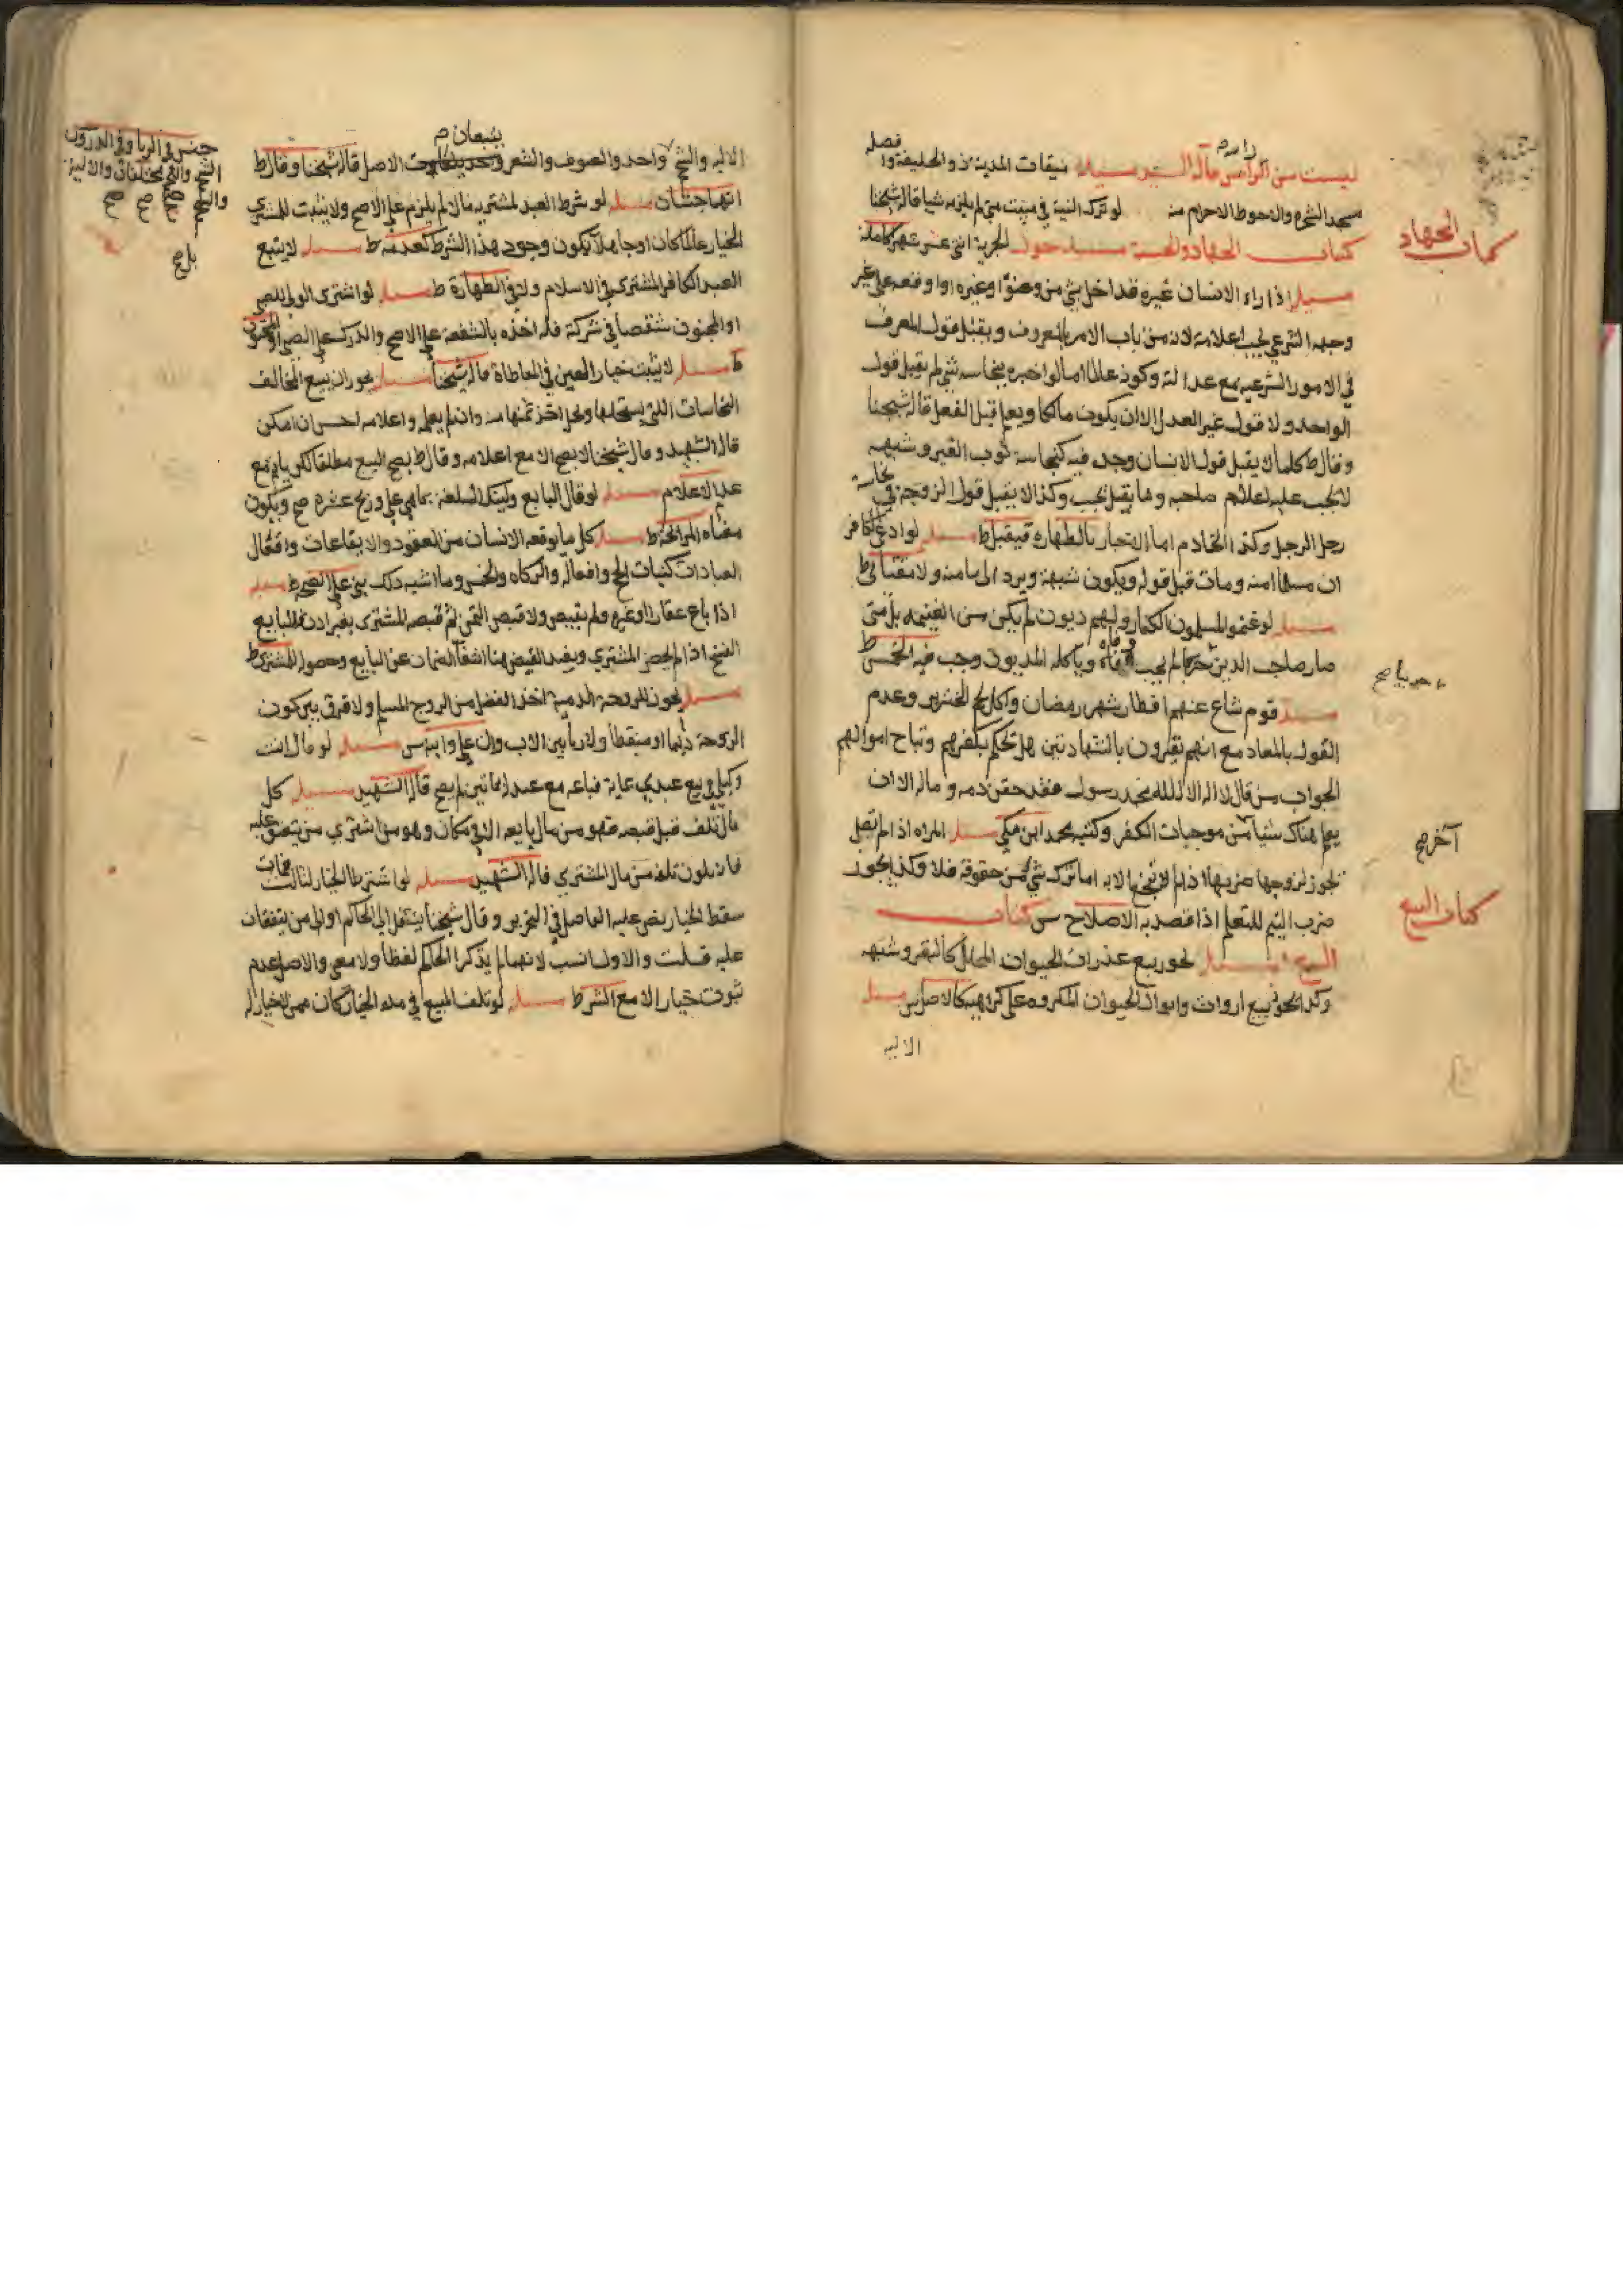 ليست من الراس قاله السيد مسئلة ميقات المدينة ذو الحليفة وا فضله
مسجد الشجرة والاحوط الاحرام منه لو ترك النية في مبيت منى لم يلزمه شيا قاله شيخنا
كتاب الجهاد
كتاب الجهاد والحسبة مسئلة حول الجزية اثنى عشر شهرا كاملة
مسئلة اذا راه الانسان غيره قد اخل بشي من وضوء او غيره او اوقعه على غير
وجهه الشرعي يجب اعلامه لانه من باب الامر بالمعروف ويقبل قول المعرف
في الامور الشرعيه مع عدالته وكونه عالما اما لو اخبره بنجاسه شي لم يقبل قول
الواحد ولا قول غير العدل الا ان يكون مالكا ويعلم قبل الفعل قاله شيخنا
وقال ط كلما لا يقبل قول الانسان وحده فيه كنجاسة ثوب الغير وشبهه
لا يجب عليه اعلام صاحبه وما يقبل يجب وكذا لا يقبل قول الزوجه في نجاسة
رجل الرجل وكذا الخادم اما الاخبار بالطهارة فيقبل ط مسئلة لو ادعى الكافر
ان مسلما امنه ومات قبل قوله ويكون شبهة ويرد الى مامنه ولا
مسئلة لو غنم المسلمون الكفار ولهم ديون لم يكن من الغنيمه بل متى
صار صاحب الدين حربيا لم يجب وفاه وياكله المديون وجب فيه الخمس ط
حربيا صح
مسئلة قوم شاع عنهم افطار شهر رمضان واكل لحم الخنزير وعدم
القول بالمعاد مع انهم يقرون بالشهادتين هل نحكم بكفرهم وتباح اموالهم
الجواب من قال لا اله الا الله محمد رسول فقد حقن دمه وماله الا ان
يعلم هناك شيا من موجبات الكفر وكتبه محمد ابن مكي مسئلة المراه اذا لم تصل
آخر صح
يجوز لزوجها ضربها اذا لم الا به اما ترك شي من حقوقه فلا وكذا يجوز
ضرب اليتيم للتعلم اذا قصد به الاصلاح س كتاب
كتاب البيع
البيع مسئلة يجوز بيع عذرات الحيوان المحلل كالبقر وشبهه
وكذا يجوز بيع ارواث وابوال الحيوان المكروه على كراهيه كالاصل س مسئلة
الاليه
الاليه والشحم واحد والصوف والشعر الاصل قاله شيخنا وقال ط
يتبعان م
جنس في الربا وفي الدروس
الشحم واللحم مختلفان والالية
صح صح صح
انهما جنسان مسئلة لو شرط العبد لمشتريه مالا لم يلزم على الاصح ولا يثبت للمشتري
الخيار عالما كان او جاهلا يكون وجود هذا الشرط كعدمه ط مسئلة لا يتبع
بلغ
العبد الكافر المشتري في الاسلام ولا في الطهارة ط مسئلة لو اشترى الولي للصبي
او المجنون شقصا في شركة فله اخذه بالشفعة على الاصح والدرك على الصبي او المجنون
ط مسئلة لا يثبت خيار العين في المعاطاة قاله شيخنا مسئلة يجوز ان يبيع المخالف
النجاسات التي يستحلها ويحل اخذ ثمنها منه وان لم يعلمه واعلامه احسن ان امكن
قاله الشهيد وقال شيخنا لا يصح الا مع اعلامه وقال ط يصح البيع مطلقا لكن ياثم مع
عدم الاعلام مسئلة لو قال البايع وليتك السلعة بما هي علي وربح عشرة صح ويكون
معناه المرابحة ط مسئلة كل ما يوقعه الانسان من العقود والايقاعات وافعال
العبادات كنيات الحج وافعاله والزكاه والخمس وما اشبه ذلك يبنى على الصحه ط مسئلة
اذا باع عقارا او غيره ولم يقبض ولا قبض الثمن ثم قبضه المشتري بغير اذن فللبايع
الفسخ اذا لم يحضر المشتري ويفيد القبض هنا انتفاء الضمان عن البايع وحصوله للمشتري ط
مسئلة يجوز للزوجة الذمية اخذ الفضل من الزوج المسلم ولا فرق بين كون
الزوجة دائما او منقطعا ولا ربا بين الاب وان علا وابنه س مسئلة لو قال انت
وكيلي في بيع عبدي بماية فباعه مع عبد له بماتين لم يصح قاله الشهيد مسئلة كل
مال تلف قبل قبضه فهو من مال بايعه الا في مكان وهو من اشترى من ينعتق عليه
فانه يكون تلفه من مال المشتري قاله الشهيد مسئلة لو اشترط الخيار لثالث فمات
سقط الخيار نص عليه الفاضل في التحرير وقال شيخنا ينتقل الى الحاكم او الى من يتفقان
عليه قلت والاول انسب لانهما لم يذكرا الحاكم لفظا ولا معنى والاصل عدم
ثبوت خيار الا مع الشرط مسئلة لو تلف المبيع في مدة الخيار كان ممن لا خيار له